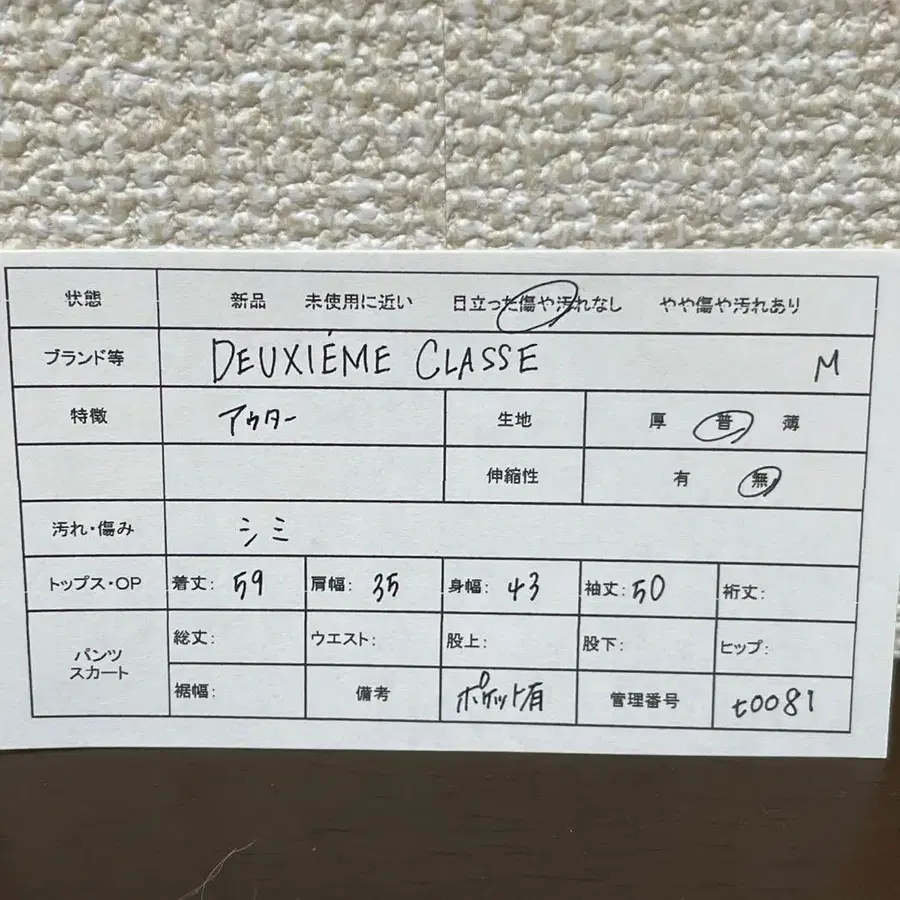 状態 新品 未使用に近い 目立った傷や汚れなし やや傷や汚れあり
ブランド等 DEUXIÉME CLASSE M
特徴 アウター 生地 厚 普 薄
伸縮性 有 無
汚れ・傷み シミ
トップス・OP 着丈: 59 肩幅: 35 身幅: 43 袖丈: 50 裄丈:
パンツ スカート 総丈: ウエスト: 股上: 股下: ヒップ:
裾幅: 備考 ポケット有 管理番号 t0081